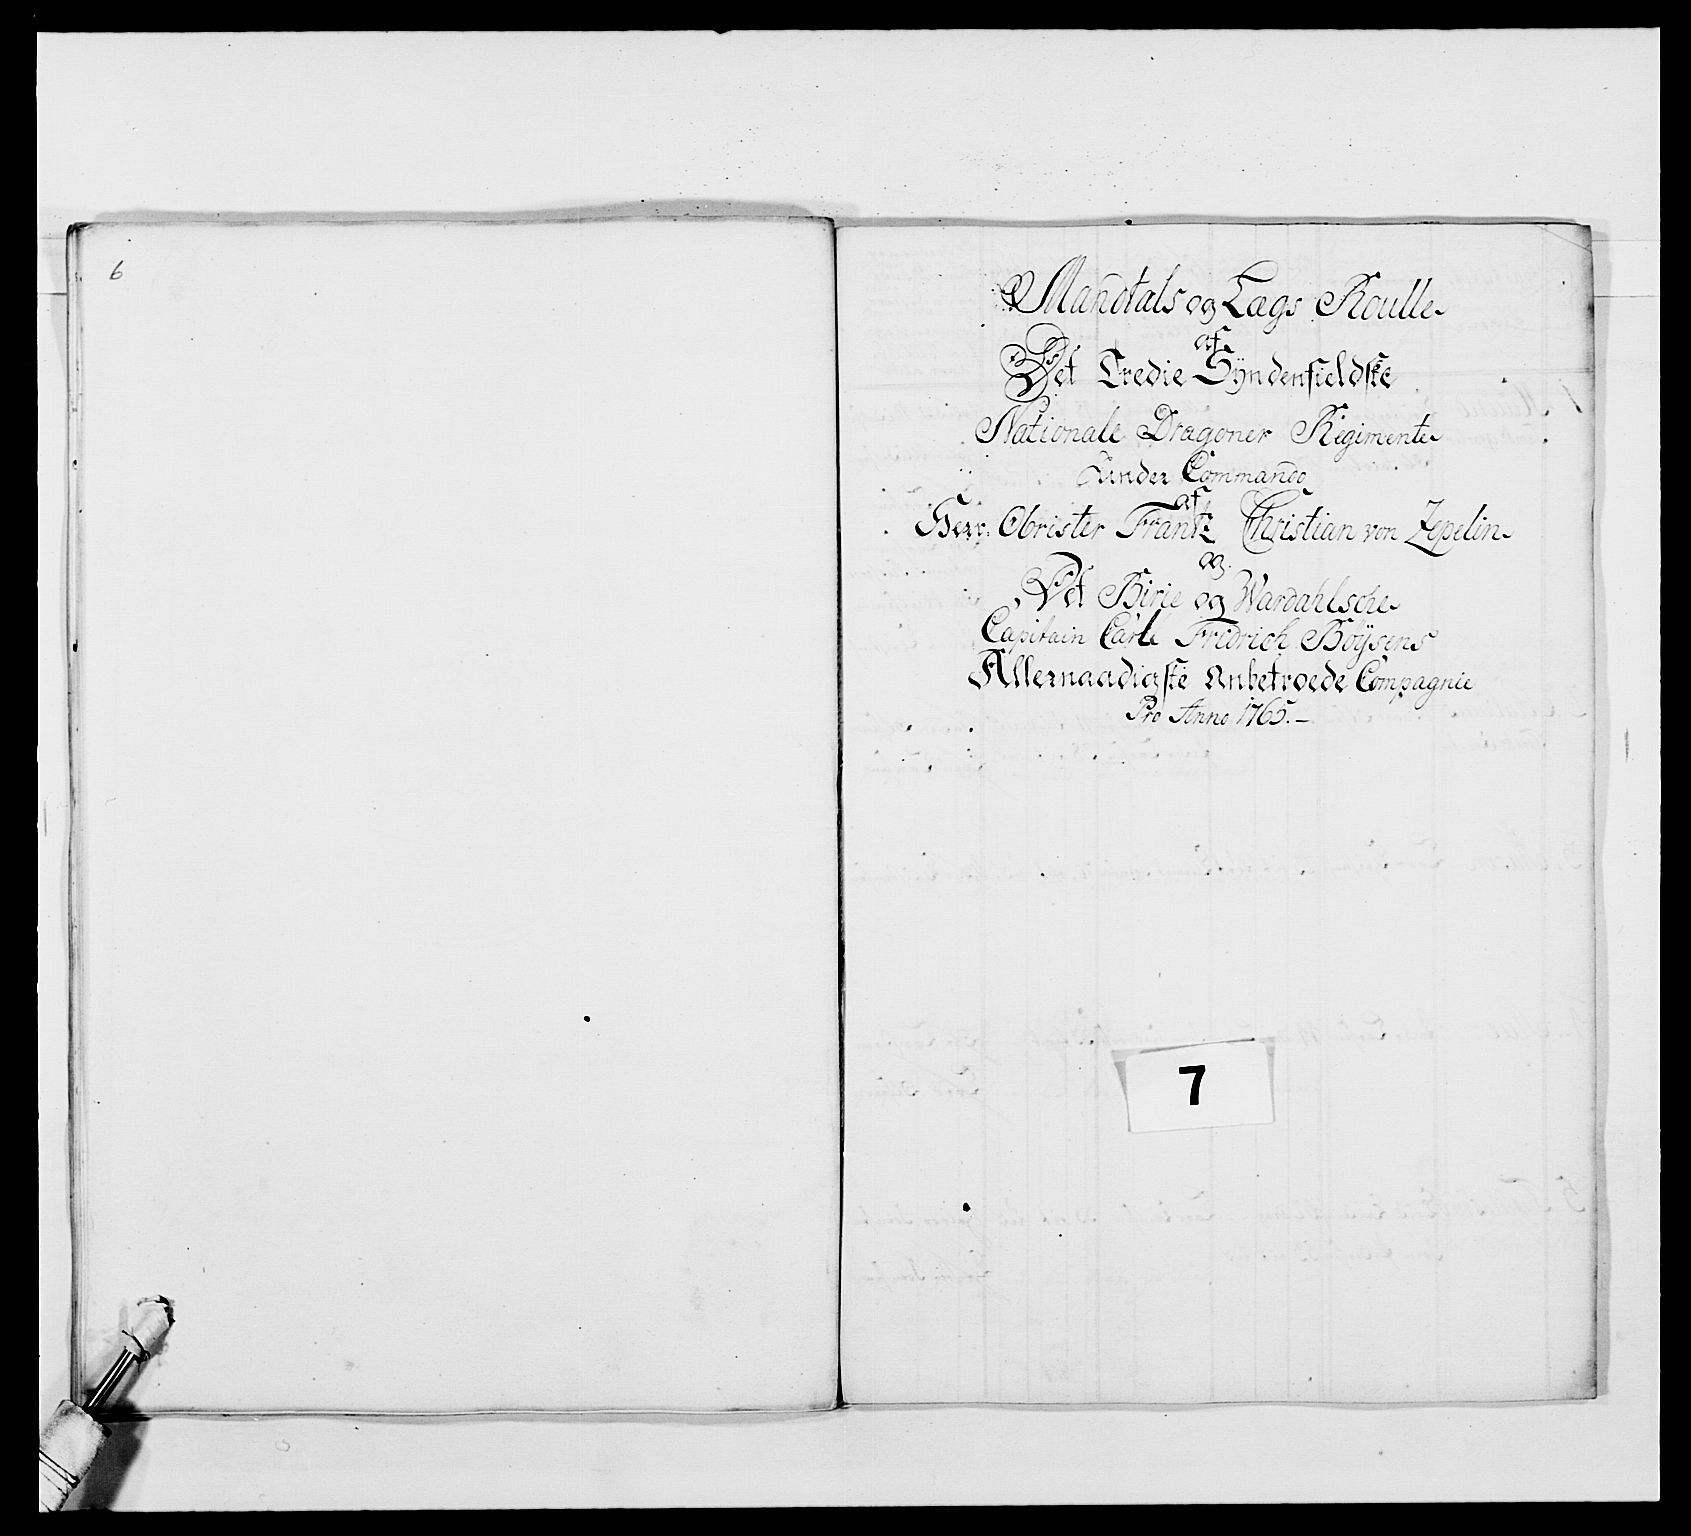 6
Mandtals og Lægs Roulle
af
Det Tredie Syndenfieldske
Nationale Dragoner Regimente
Under Commando
af
Herr Obrister Frantz Christian von Zepelin
og
Det Birie og Wardahlsche
Capitain Carl Fridrich Böysens
Allernaadigste Anbetroede Compagnie
Pro Anno 1765.
7